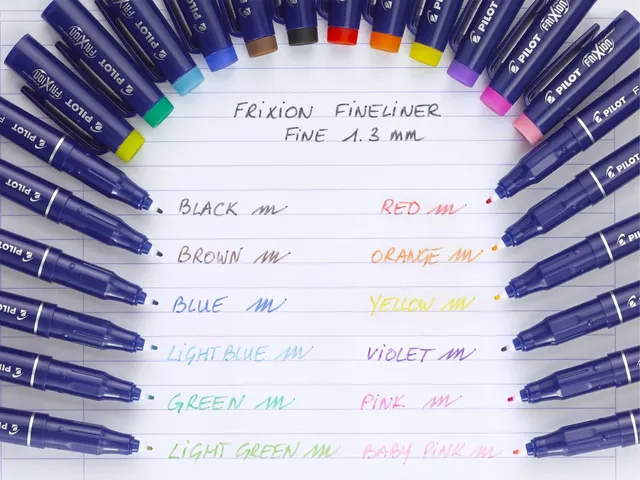 FRIXION FINELINER
FINE 1.3 mm
BLACK
BROWN
BLUE
LIGHT BLUE
GREEN
LIGHT GREEN
RED
ORANGE
YELLOW
VIOLET
PINK
BABY PINK
PILOT
FRIXION
PILOT
PILOT
PILOT
PILOT
FRIXION
PILOT
FRIXION
PILOT
PILOT
PILOT
PILOT
PILOT
PILOT
PILOT